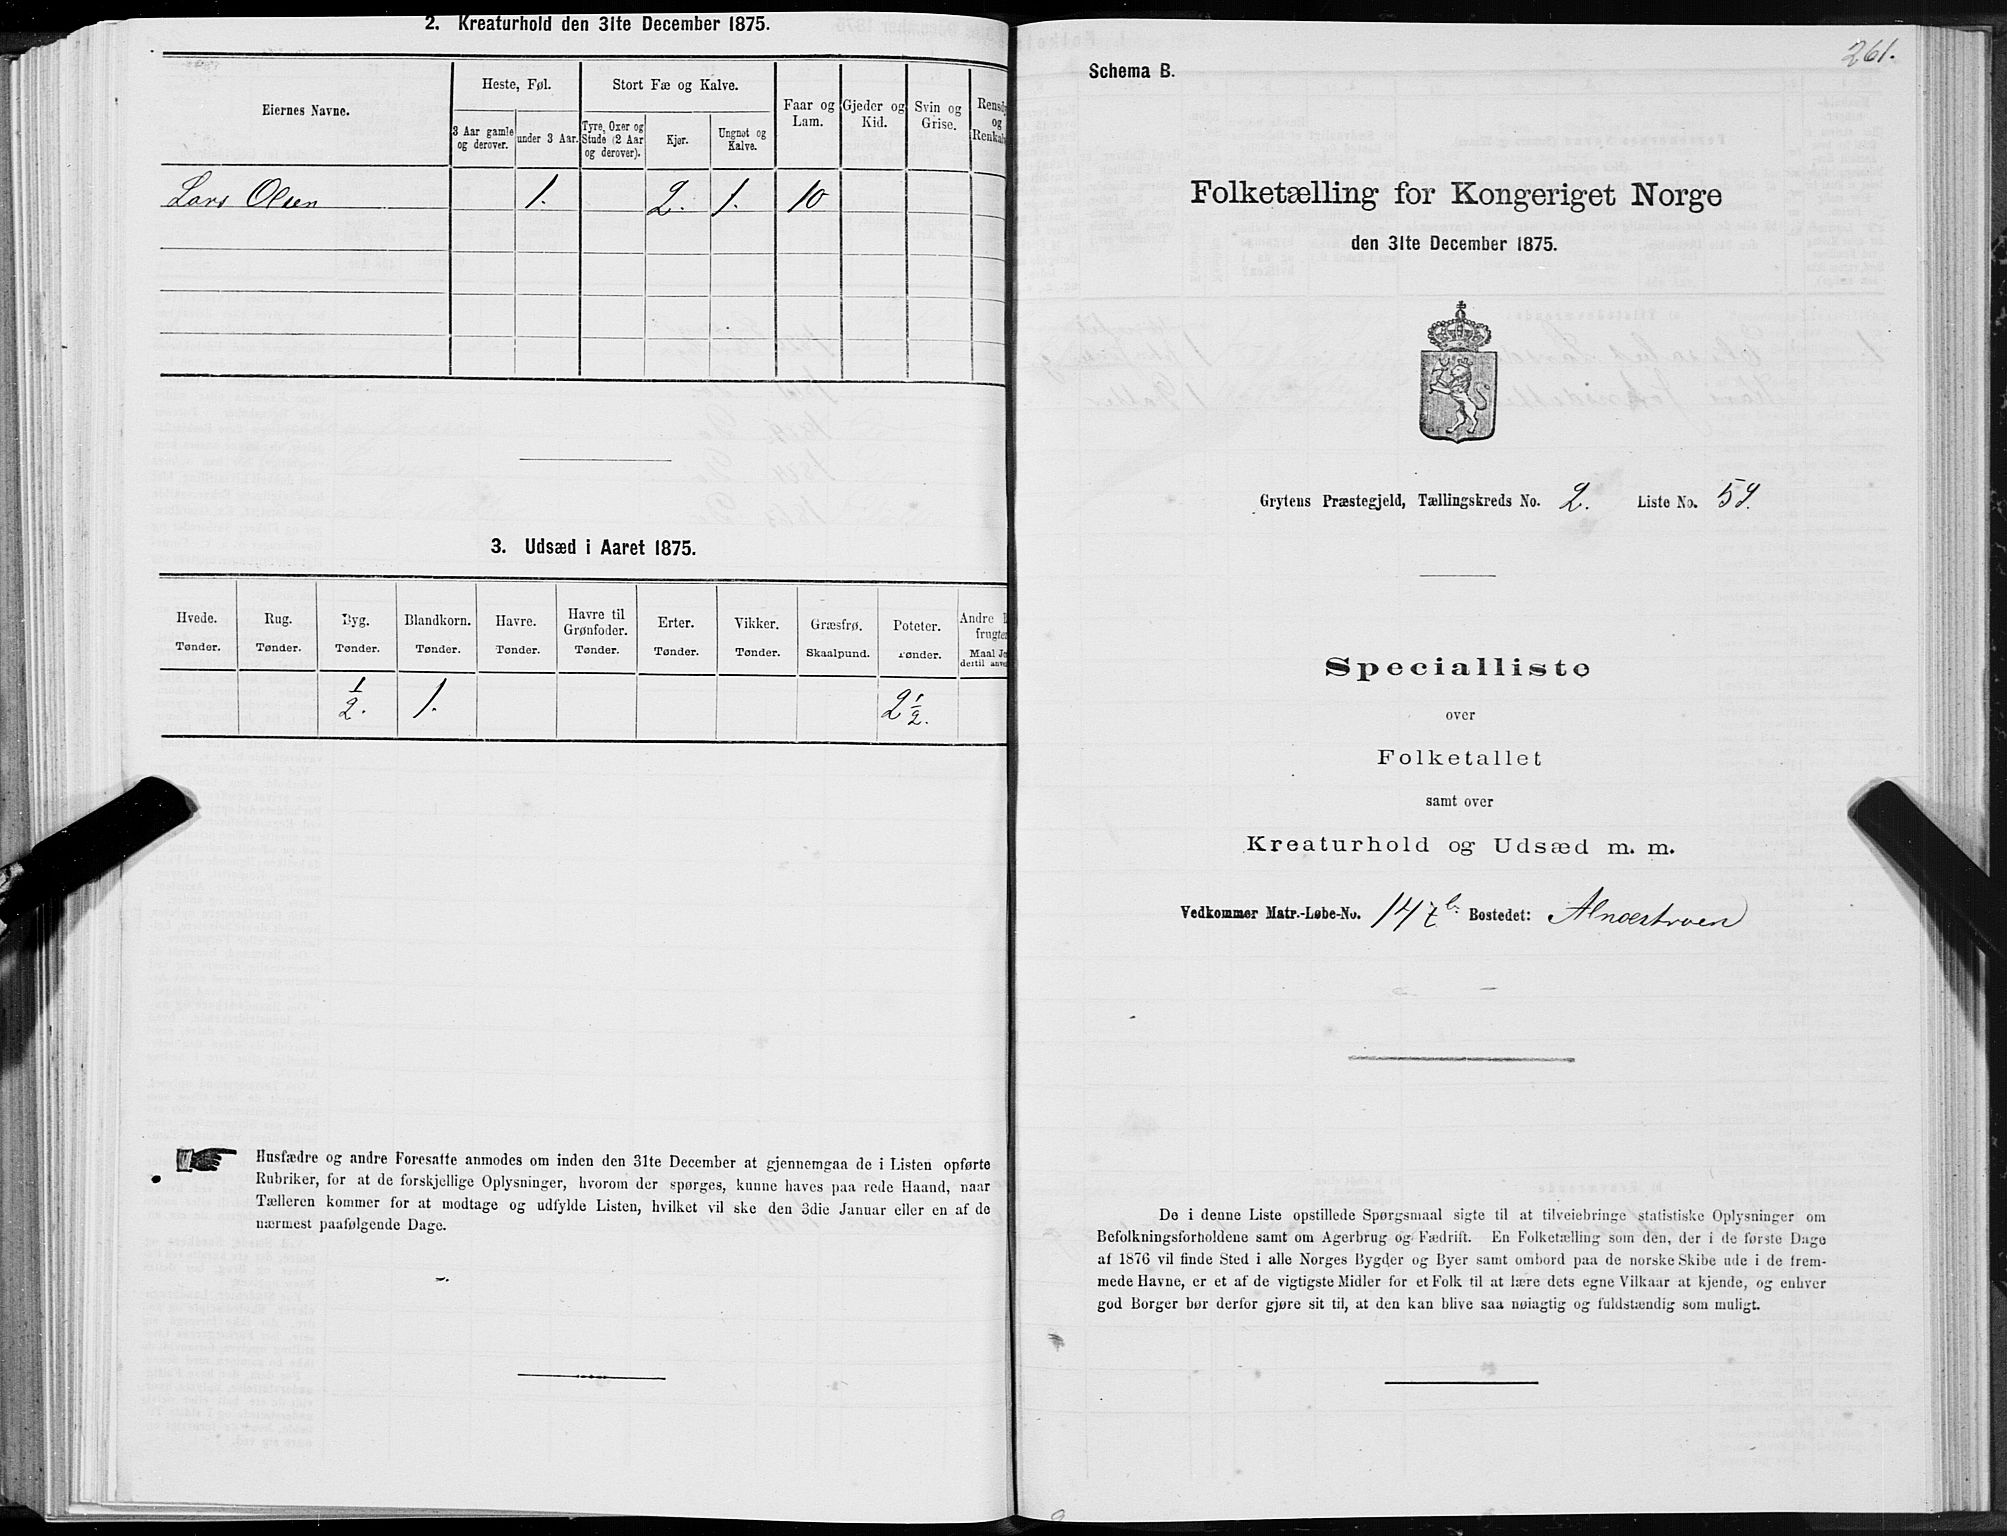 2. Kreaturhold den 31te December 1875.
Eiernes Navne.
Heste, Føl.
Stort Fæ og Kalve.
Faar og Lam.
Gjeder og Kid.
Svin og Grise.
Rensdy
og
Renkalv
3 Aar gamle og derover.
under 3 Aar.
Tyre, Oxer og Stude (2 Aar og derover).
Kjør.
Ungnøt og Kalve.
Lars Olsen 1. 2. 1. 10
3. Udsæd i Aaret 1875.
Hvede. Rug. Byg. Blandkorn. Havre. Havre til Grønfoder. Erter. Vikker. Græsfrø. Poteter. Andre
frugter
Tønder. Tønder. Tønder. Tønder. Tønder. Tønder. Tønder. Tønder. Skaalpund. Tønder. Maal Jo
dertil anve
1/2. 1. 2 1/2.
Husfædre og andre Foresatte anmodes om inden den 31te December at gjennemgaa de i Listen opførte
Rubriker, for at de forskjellige Oplysninger, hvorom der spørges, kunne haves paa rede Haand, naar
Tælleren kommer for at modtage og udfylde Listen, hvilket vil ske den 3die Januar eller en af de
nærmest paafølgende Dage.
261.
Schema B.
Folketælling for Kongeriget Norge
den 31te December 1875.
Grytens Præstegjeld, Tællingskreds No. 2. Liste No. 59.
Specialliste
over
Folketallet
samt over
Kreaturhold og Udsæd m. m.
Vedkommer Matr.-Løbe-No. 147 b. Bostedet: Alnæstrøen
De i denne Liste opstillede Spørgsmaal sigte til at tilveiebringe statistiske Oplysninger om
Befolkningsforholdene samt om Agerbrug og Fædrift. En Folketælling som den, der i de første Dage
af 1876 vil finde Sted i alle Norges Bygder og Byer samt ombord paa de norske Skibe ude i de frem-
mede Havne, er et af de vigtigste Midler for et Folk til at lære dets egne Vilkaar at kjende, og enhver
god Borger bør derfor gjøre sit til, at den kan blive saa nøiagtig og fuldstændig som muligt.